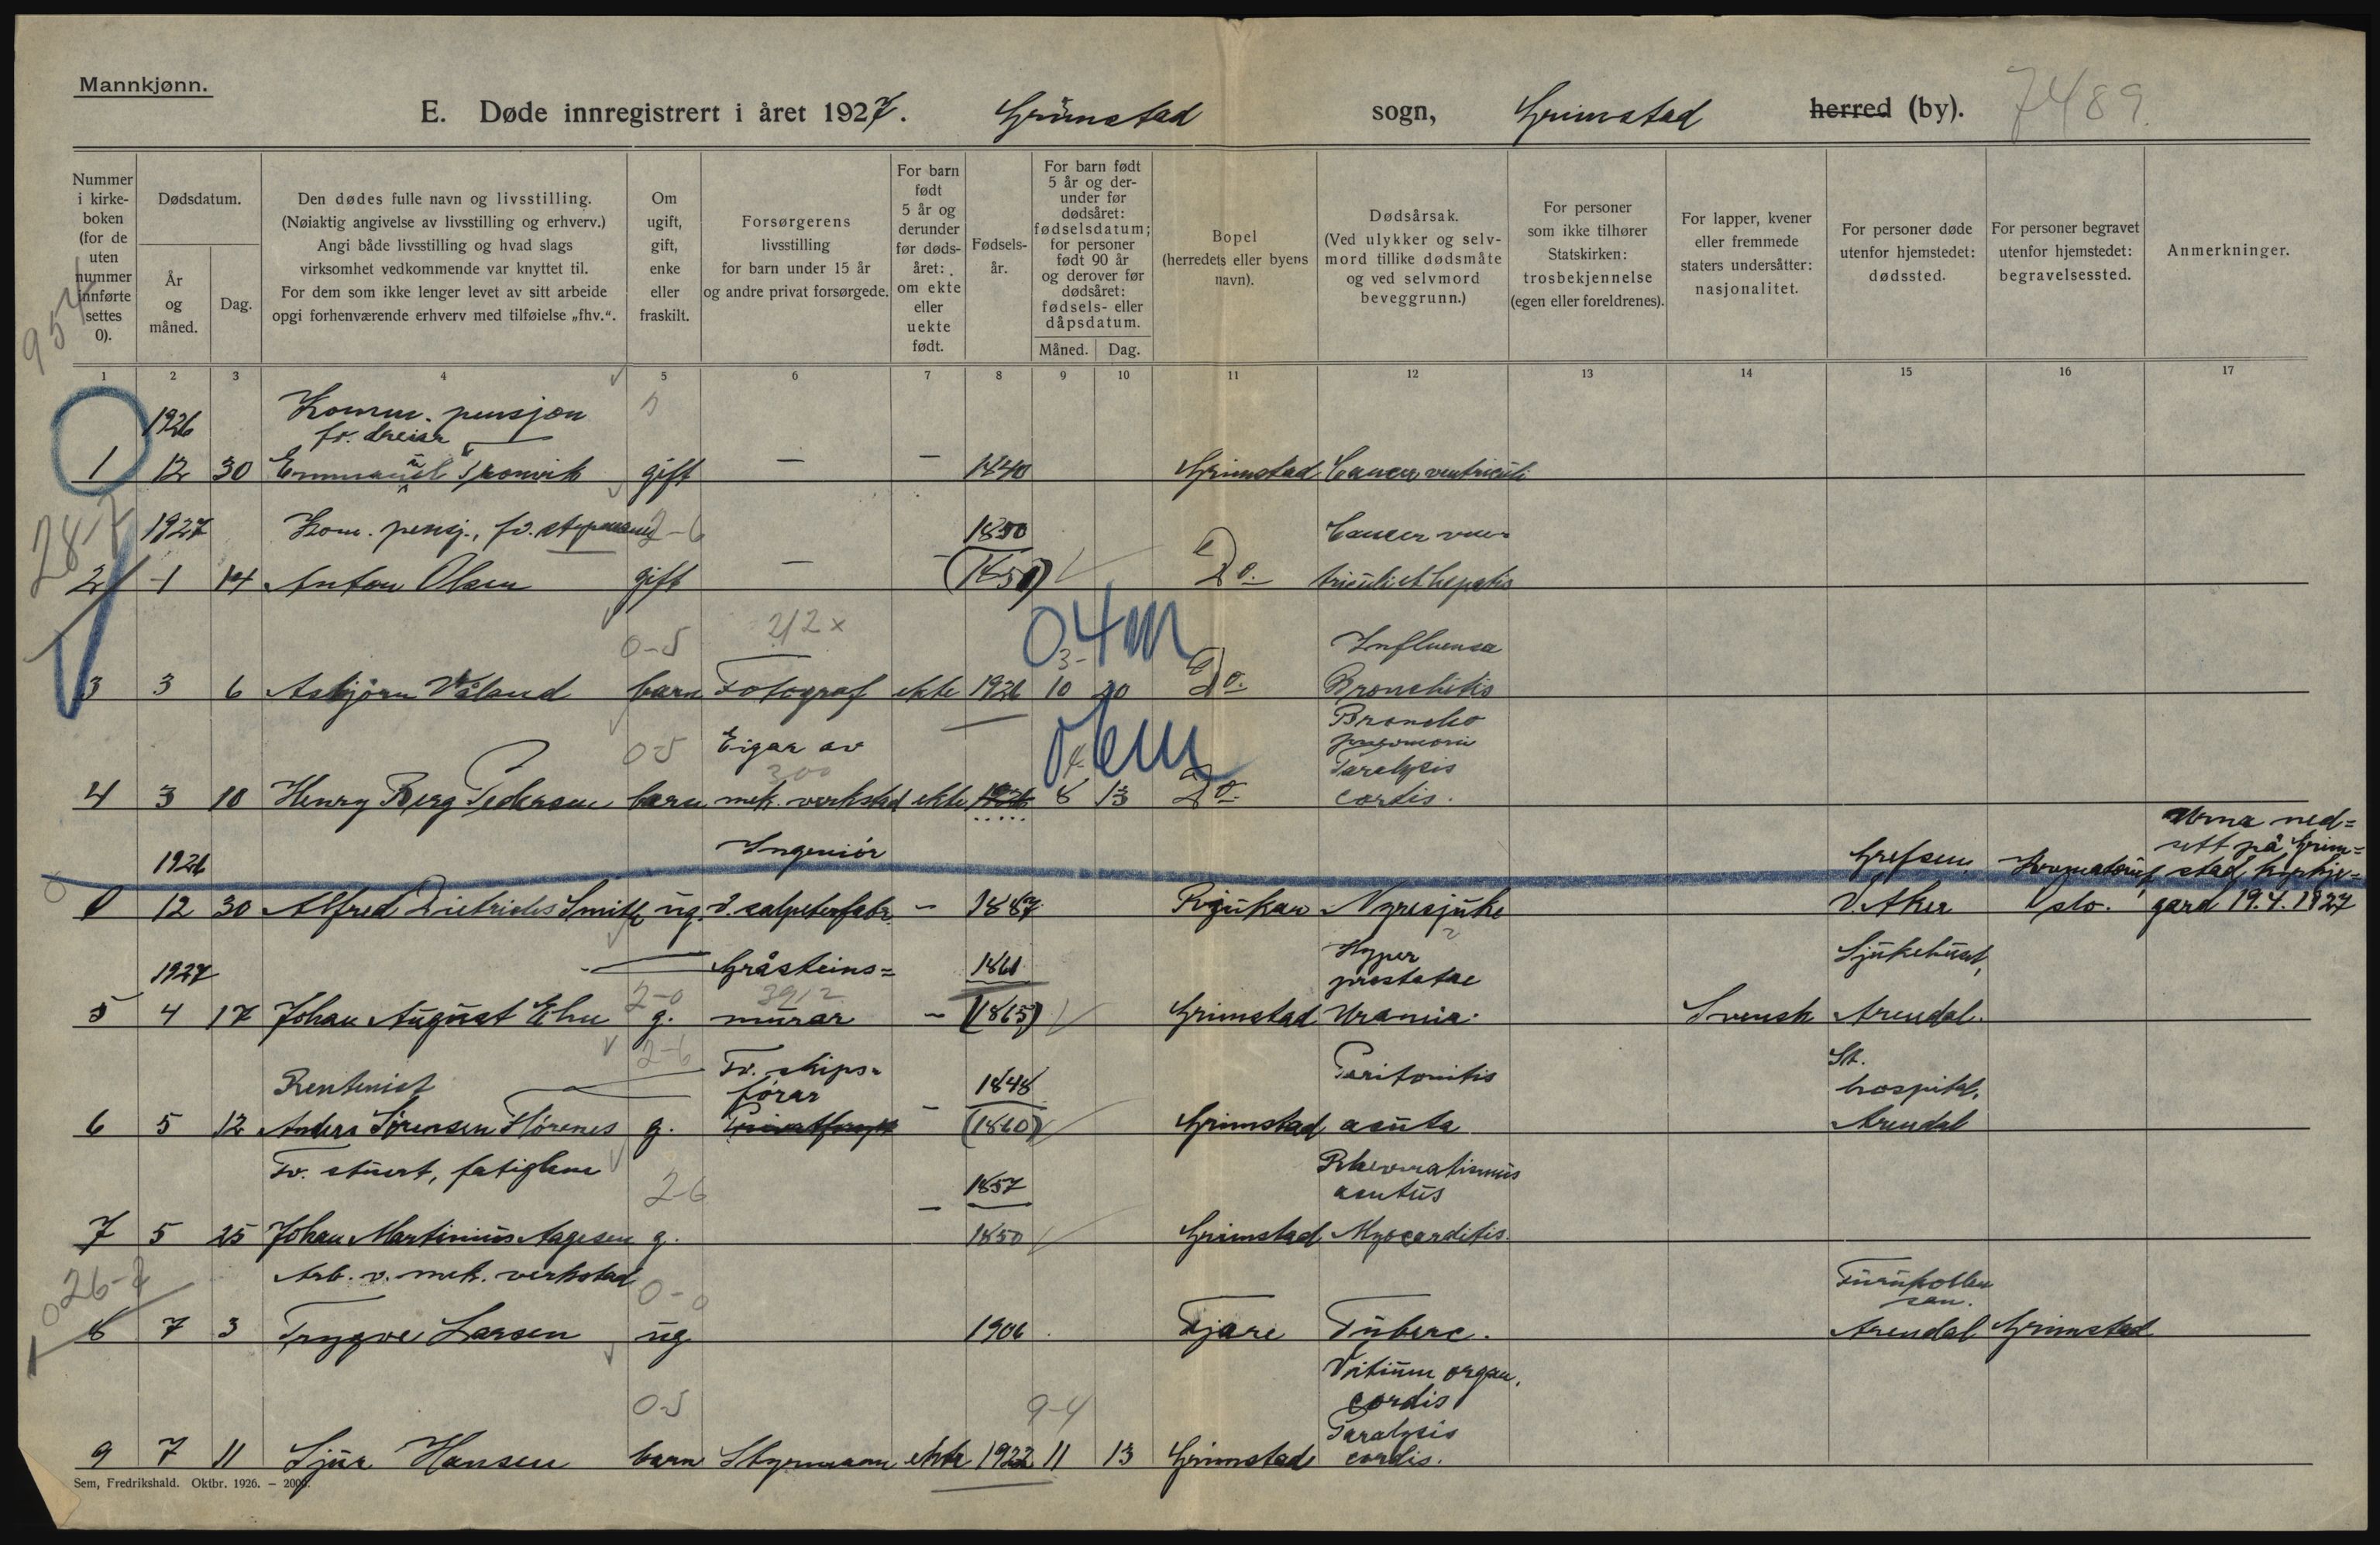 Mannkjønn.
E. Døde innregistrert i året 1927. Grimstad sogn, Grimstad herred (by). 7489.
Nummer i kirke-boken (for de uten nummer innførte settes 0).
Dødsdatum.
År og måned.
Dag.
Den dødes fulle navn og livsstilling.
(Nøiaktig angivelse av livsstilling og erhverv.)
Angi både livsstilling og hvad slags
virksomhet vedkommende var knyttet til.
For dem som ikke lenger levet av sitt arbeide
opgi forhenværende erhverv med tilføielse „fhv.“.
Om ugift, gift, enke eller fraskilt.
Forsørgerens
livsstilling
for barn under 15 år
og andre privat forsørgede.
For barn født 5 år og derunder før døds-året: om ekte eller uekte født.
Fødsels-år.
For barn født 5 år og der-under før dødsåret: fødselsdatum; for personer født 90 år og derover før dødsåret: fødsels- eller dåpsdatum.
Måned. Dag.
Bopel
(herredets eller byens
navn).
Dødsårsak.
(Ved ulykker og selv-
mord tillike dødsmåte
og ved selvmord
beveggrunn.)
For personer
som ikke tilhører
Statskirken:
trosbekjennelse
(egen eller foreldrenes).
For lapper, kvener
eller fremmede
staters undersåtter:
nasjonalitet.
For personer døde
utenfor hjemstedet:
dødssted.
For personer begravet
utenfor hjemstedet:
begravelsessted.
Anmerkninger.
1 2 3 4 5 6 7 8 9 10 11 12 13 14 15 16 17
1926 Komm. pensjon
fv. dreiar
1 12 30 Emmanuel Tronvik gift — — 1840 Grimstad Cancer ventriculi
28-7
1927 Kom. pensj., fv. 2-6 1850 Cancer ven-
2 1 14 Anton Olsen gift — — (1851) Do. triculi et hepatis
0-5 212 x 04m Influensa
3 3 6 Asbjørn Våland barn Fotograf ekte 1926 10 20 Do. Bronchitis
0-5 Eigar av 300 06m Broncho
pneomoni
Paralysis
4 3 10 Henry Berg Pedersen barn mek. verkstad ekte 1926 8 13 Do. cordis.
1926 Ingeniør Grefsen, Krematoriet Urna ned=
sett på Grim=
stad kyrkje=
0 12 30 Alfred Dietrichs Smith ug. v. salpeterfabr. — 1887 Rjukan Nyresjuke V. Aker Oslo. gard 19.4.1927
1927 Gråsteins= 1861 Hyper
prostatae Sjukehuset,
2-0 3912
5 4 17 Johan August Ehn g. murar — (1865) Grimstad Uramia. Svensk Arendal.
2-6
Rentenist Fv. skips=
førar 1848 Peritonitis St.
hospital,
6 5 12 Anders Sørensen Hørenes g. — (1860) Grimstad acuta Arendal
Fv. stuert, fatiglem 2-6 1857 Rheumatismus
acutus
7 5 25 Johan Martinius Aagesen g. — 1850 Grimstad Myocarditis.
026-2
Arb. v. mek. verkstad 0-0 Furukollen
san.
8 7 3 Trygve Larsen ug 1906 Fjære Tuberc. Arendal Grimstad
0-5 9-4 Vitium organ.
cordis
Paralysis
9 7 11 Sjur Hansen barn Styrmann ekte 1922 11 13 Grimstad cordis.
Sem, Fredrikshald. Oktbr. 1926. — 2000.